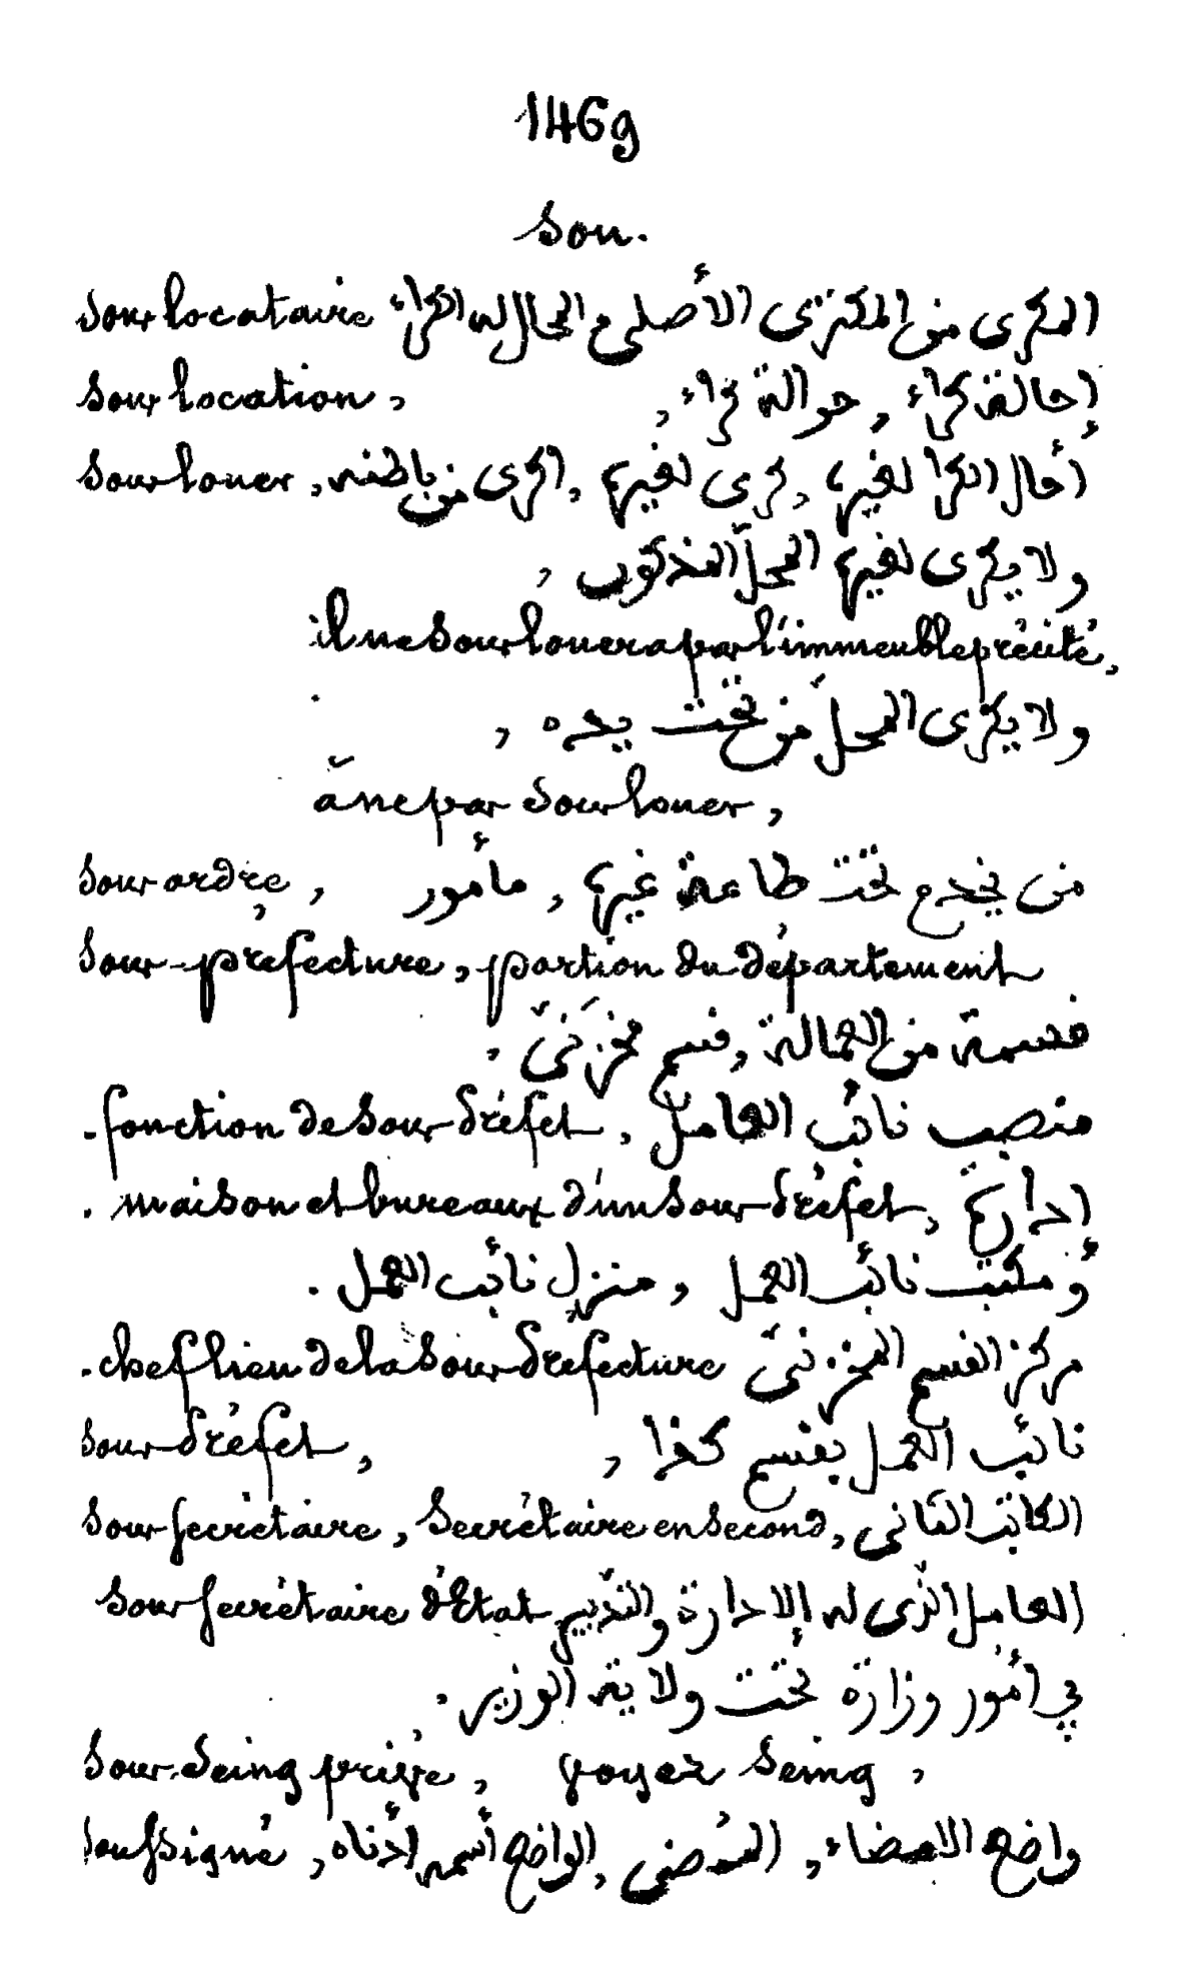 1469
Sou.
Sous locataire المكرى من المكترى الأصلي م المحال له الكراء
Sous location, إحالة كراء , حوالة كراء ,
Sous louer, أحال الكرا لغيره , كرى لغيره , اكرى من باطنه
ولا يكرى لغيره المحلّ المذكور ,
il ne sous louera pas l'immeuble précité,
ولا يكرى المحلّ من تحت يده ,
à ne pas sous louer,
Sous ordre, من يخدم تحت طاعة غيره , مأمور
Sous-préfecture, portion du département
قسمة من العمالة , قسم مخزنيّ ,
. fonction de Sous-Préfet, منصب نائب العامل
. maison et bureaux d'un Sous-Préfet, إدارة
أو مكتب نائب العمل , منزل نائب العمل .
. chef lieu de la Sous Préfecture مركز القسم المخزنيّ
Sous-Préfet, نائب العمل بقسم كذا ,
Sous-secrétaire, Secrétaire en Second, الكاتب الثاني
Sous secrétaire d'Etat العامل الذى له الادارة والتدبير
في أمور وزارة تحت ولاية الوزير .
Sous-Seing privé, voyez Seing,
Soussigné, واضع الامضاء , الممضى , الواضع أسمه أدناه